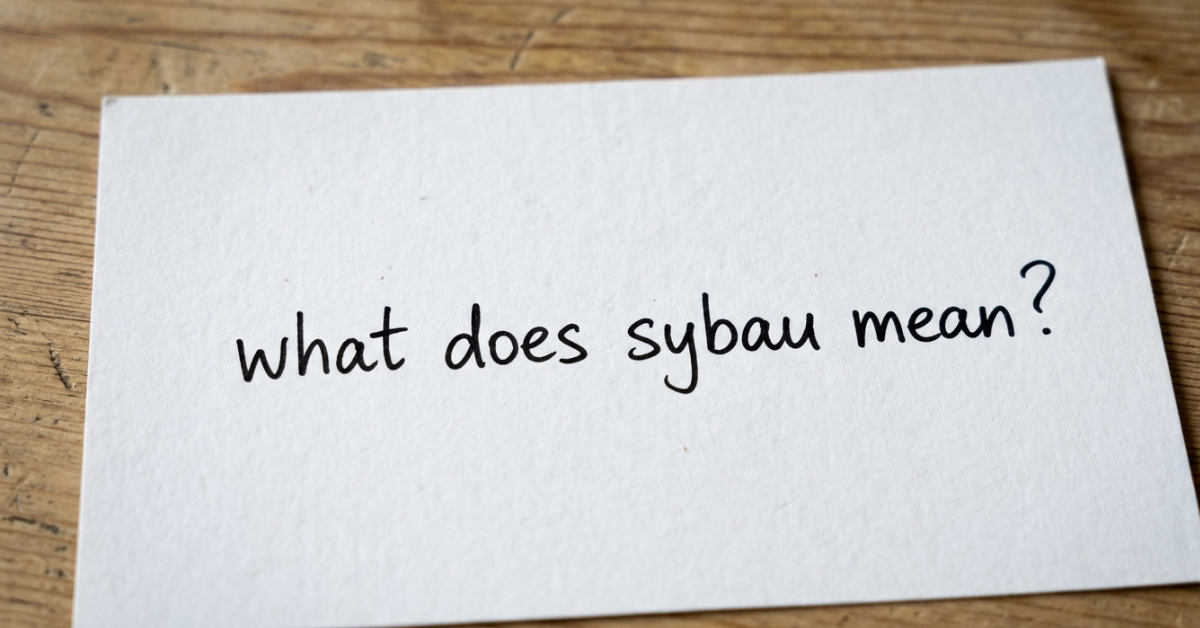 what does sybau mean?